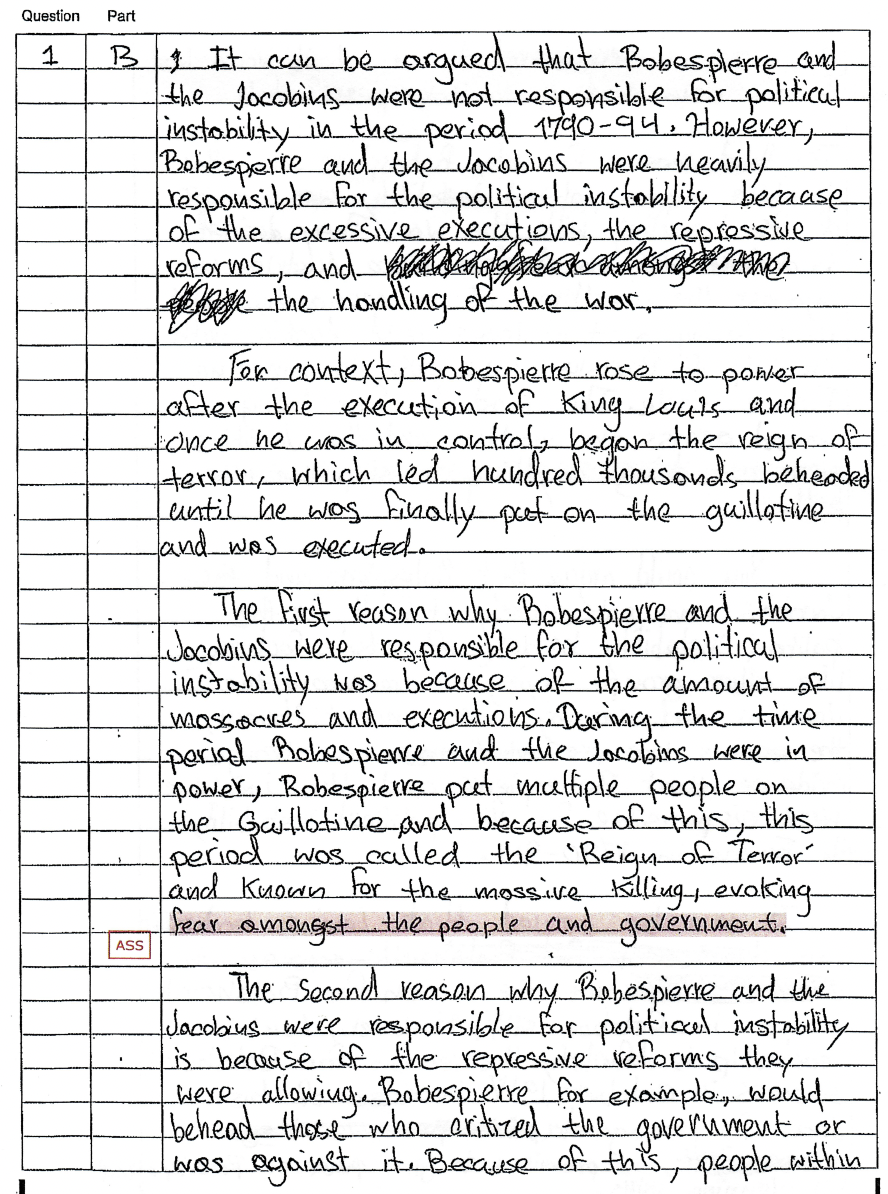 Question Part
1 B It can be argued that Robespierre and
the Jacobins were not responsible for political
instability in the period 1790-94. However,
Robespierre and the Jacobins were heavily
responsible for the political instability because
of the excessive executions, the repressive
reforms, and
the handling of the war.
For context, Robespierre rose to power
after the execution of King Louis and
once he was in control, began the reign of
terror, which led hundred thousands beheaded
until he was finally put on the guillotine
and was executed.
The first reason why Robespierre and the
Jacobins were responsible for the political
instability was because of the amount of
massacres and executions. During the time
period Robespierre and the Jacobins were in
power, Robespierre put multiple people on
the Guillotine and because of this, this
period was called the 'Reign of Terror'
and known for the massive killing, evoking
fear amongst the people and government.
ASS
The second reason why Robespierre and the
Jacobins were responsible for political instability
is because of the repressive reforms they
were allowing. Robespierre for example, would
behead those who critized the government or
was against it. Because of this, people within